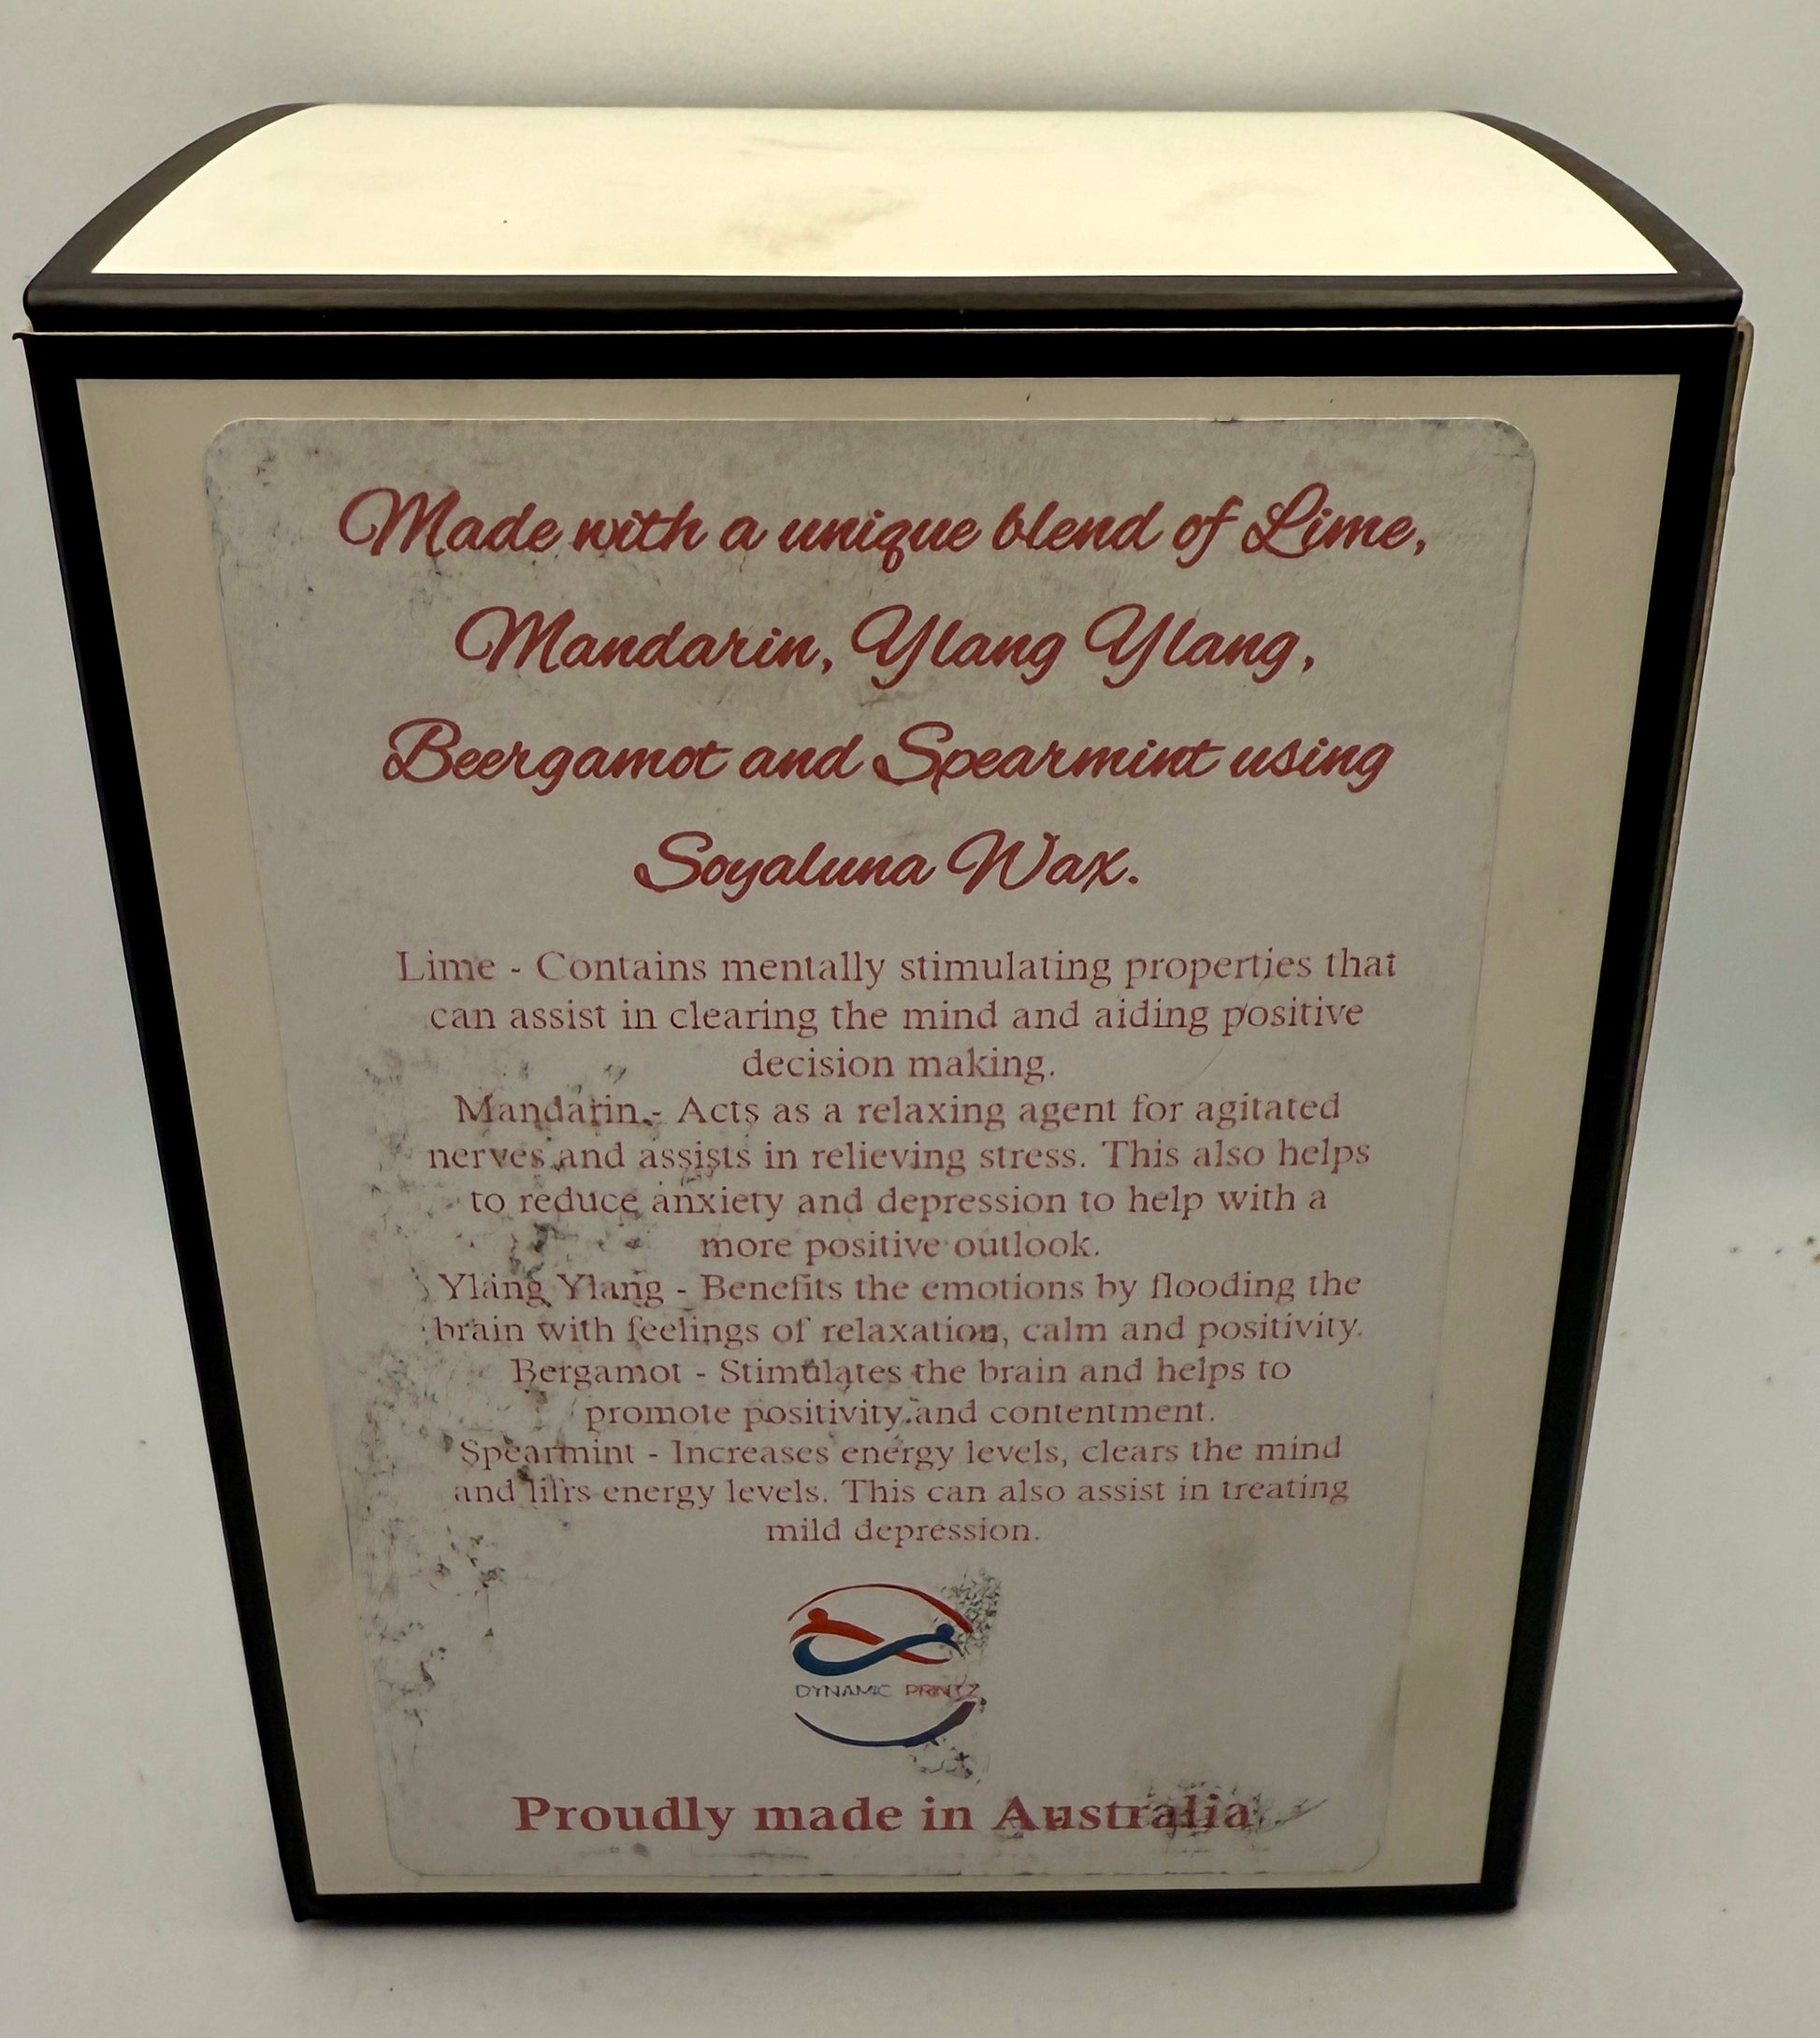 Made with a unique blend of Lime,
Mandarin, Ylang Ylang,
Beergamot and Spearmint using
Soyaluna Wax.
Lime - Contains mentally stimulating properties that
can assist in clearing the mind and aiding positive
decision making.
Mandarin - Acts as a relaxing agent for agitated
nerves and assists in relieving stress. This also helps
to reduce anxiety and depression to help with a
more positive outlook.
Ylang Ylang - Benefits the emotions by flooding the
brain with feelings of relaxation, calm and positivity.
Bergamot - Stimulates the brain and helps to
promote positivity and contentment.
Spearmint - Increases energy levels, clears the mind
and lifts energy levels. This can also assist in treating
mild depression.
DYNAMIC PRINTZ
Proudly made in Australia